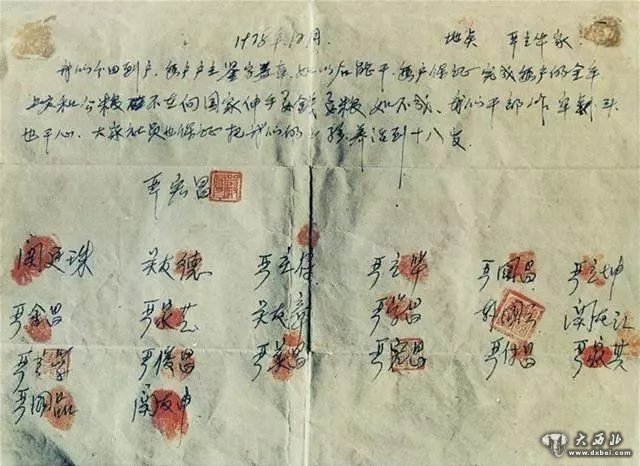 1978年12月. 地点 严立华家.
我们分田到户.每户户主签字盖章.如以后能干.每户保证完成每户的全年
上交和公粮.不在向国家伸手要钱要粮.如不成.我们干部作牢刹头
也干心.大家社员也保证把我们的小孩养活到十八岁.
严宏昌
关廷珠 关友德 严立符 严立华 严国昌 严立坤
严金昌 严家芝 关友章 严学昌 韩国云 关友江
严立学 严俊昌 严美昌 严宏昌 严付昌 严家其
严国品 关友申
大西北
www.dxbei.com